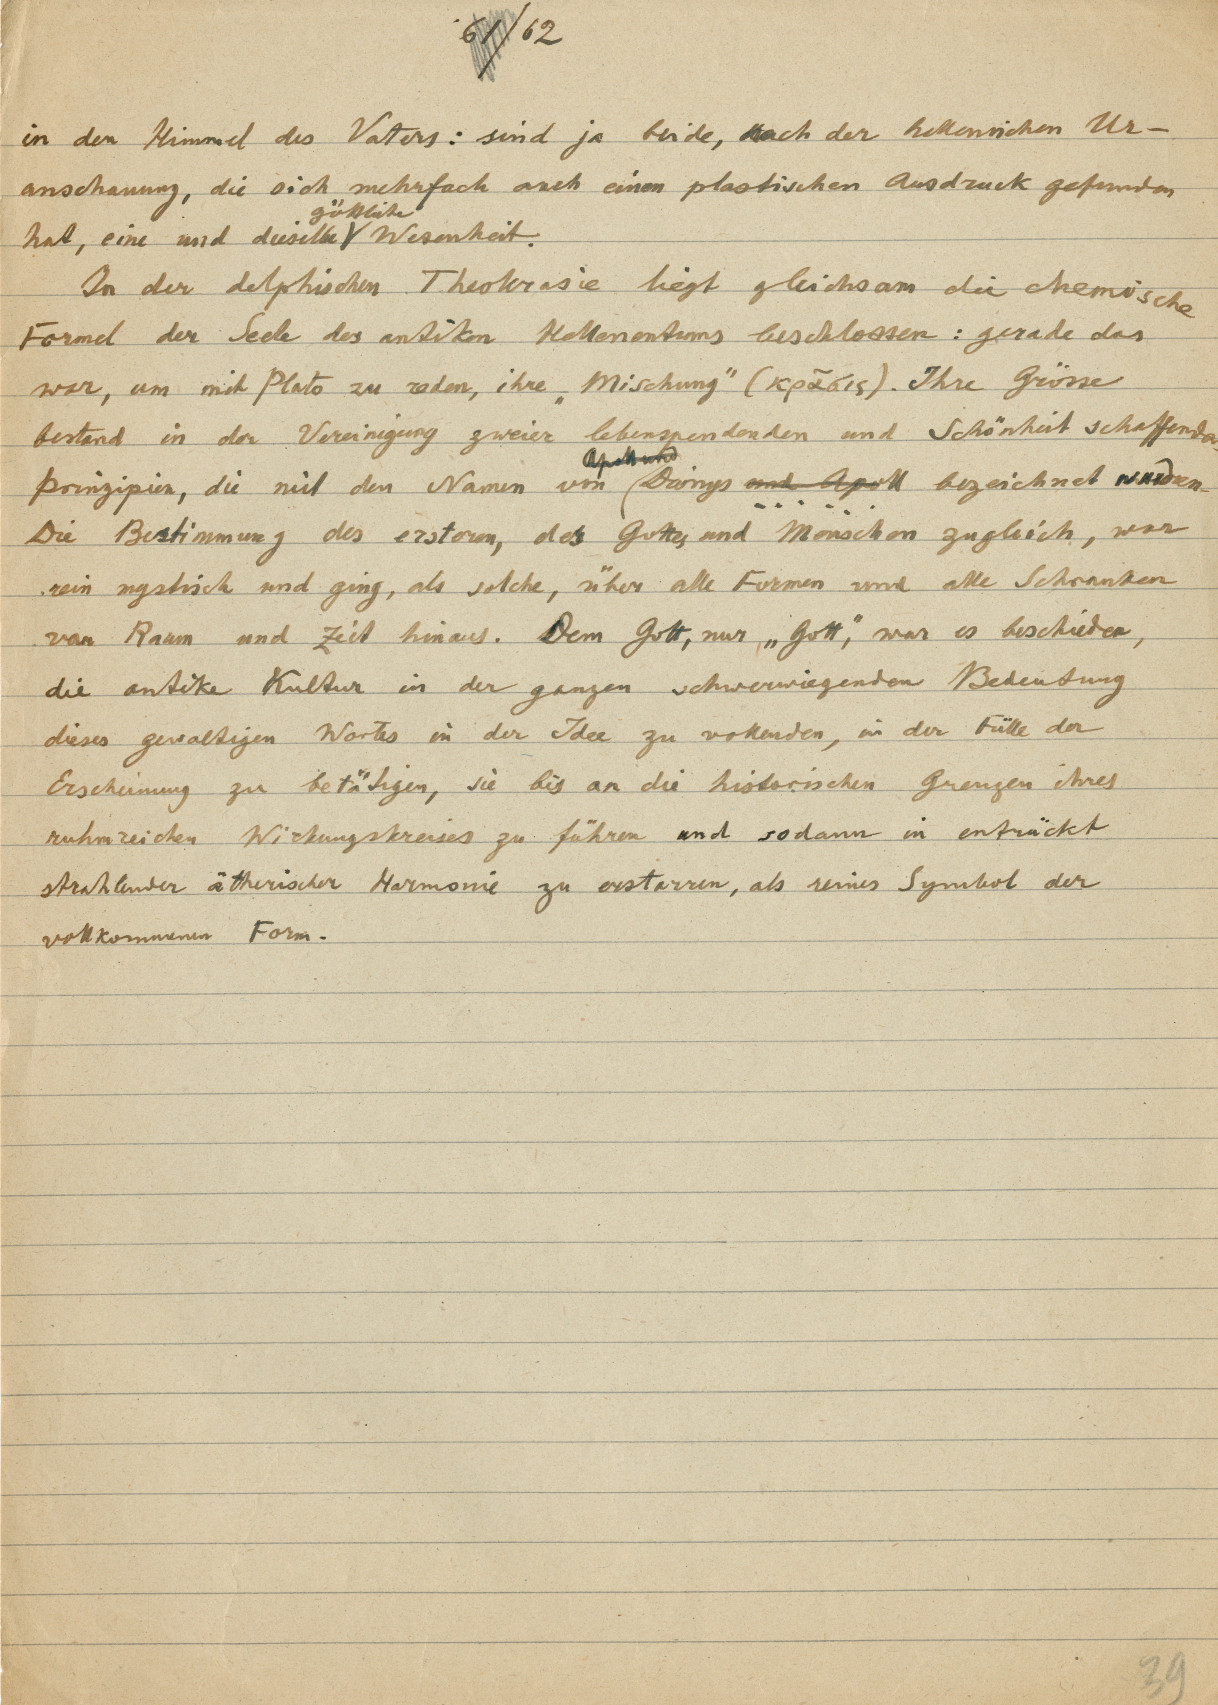 61/62
in den Himmel des Vaters: sind ja beide, nach der hellenischen Ur-
anschauung, die sich mehrfach auch einen plastischen Ausdruck gefunden
göttliche
hat, eine und dieselbe Wesenheit.
In der delphischen Theokrasie liegt gleichsam die chemische
Formel der Seele des antiken Hellenentums beschlossen: gerade das
war, um mit Plato zu reden, ihre „Mischung" (κρᾶσις). Ihre Grösse
bestand in der Vereinigung zweier lebenspendenden und Schönheit schaffenden
Apoll und
Prinzipien, die mit den Namen von Dionys und Apoll bezeichnet wurden.
Die Bestimmung des ersteren, des Gottes und Menschen zugleich, war
rein mystisch und ging, als solche, über alle Formen und alle Schranken
von Raum und Zeit hinaus. Dem Gott, nur „Gott", war es beschieden,
die antike Kultur in der ganzen schwerwiegenden Bedeutung
dieses gewaltigen Wortes in der Idee zu vollenden, in der Fülle der
Erscheinung zu betätigen, sie bis an die historischen Grenzen ihres
ruhmreichen Wirkungskreises zu führen und sodann in entrückt
strahlender ätherischer Harmonie zu erstarren, als reines Symbol der
vollkommenen Form.
39